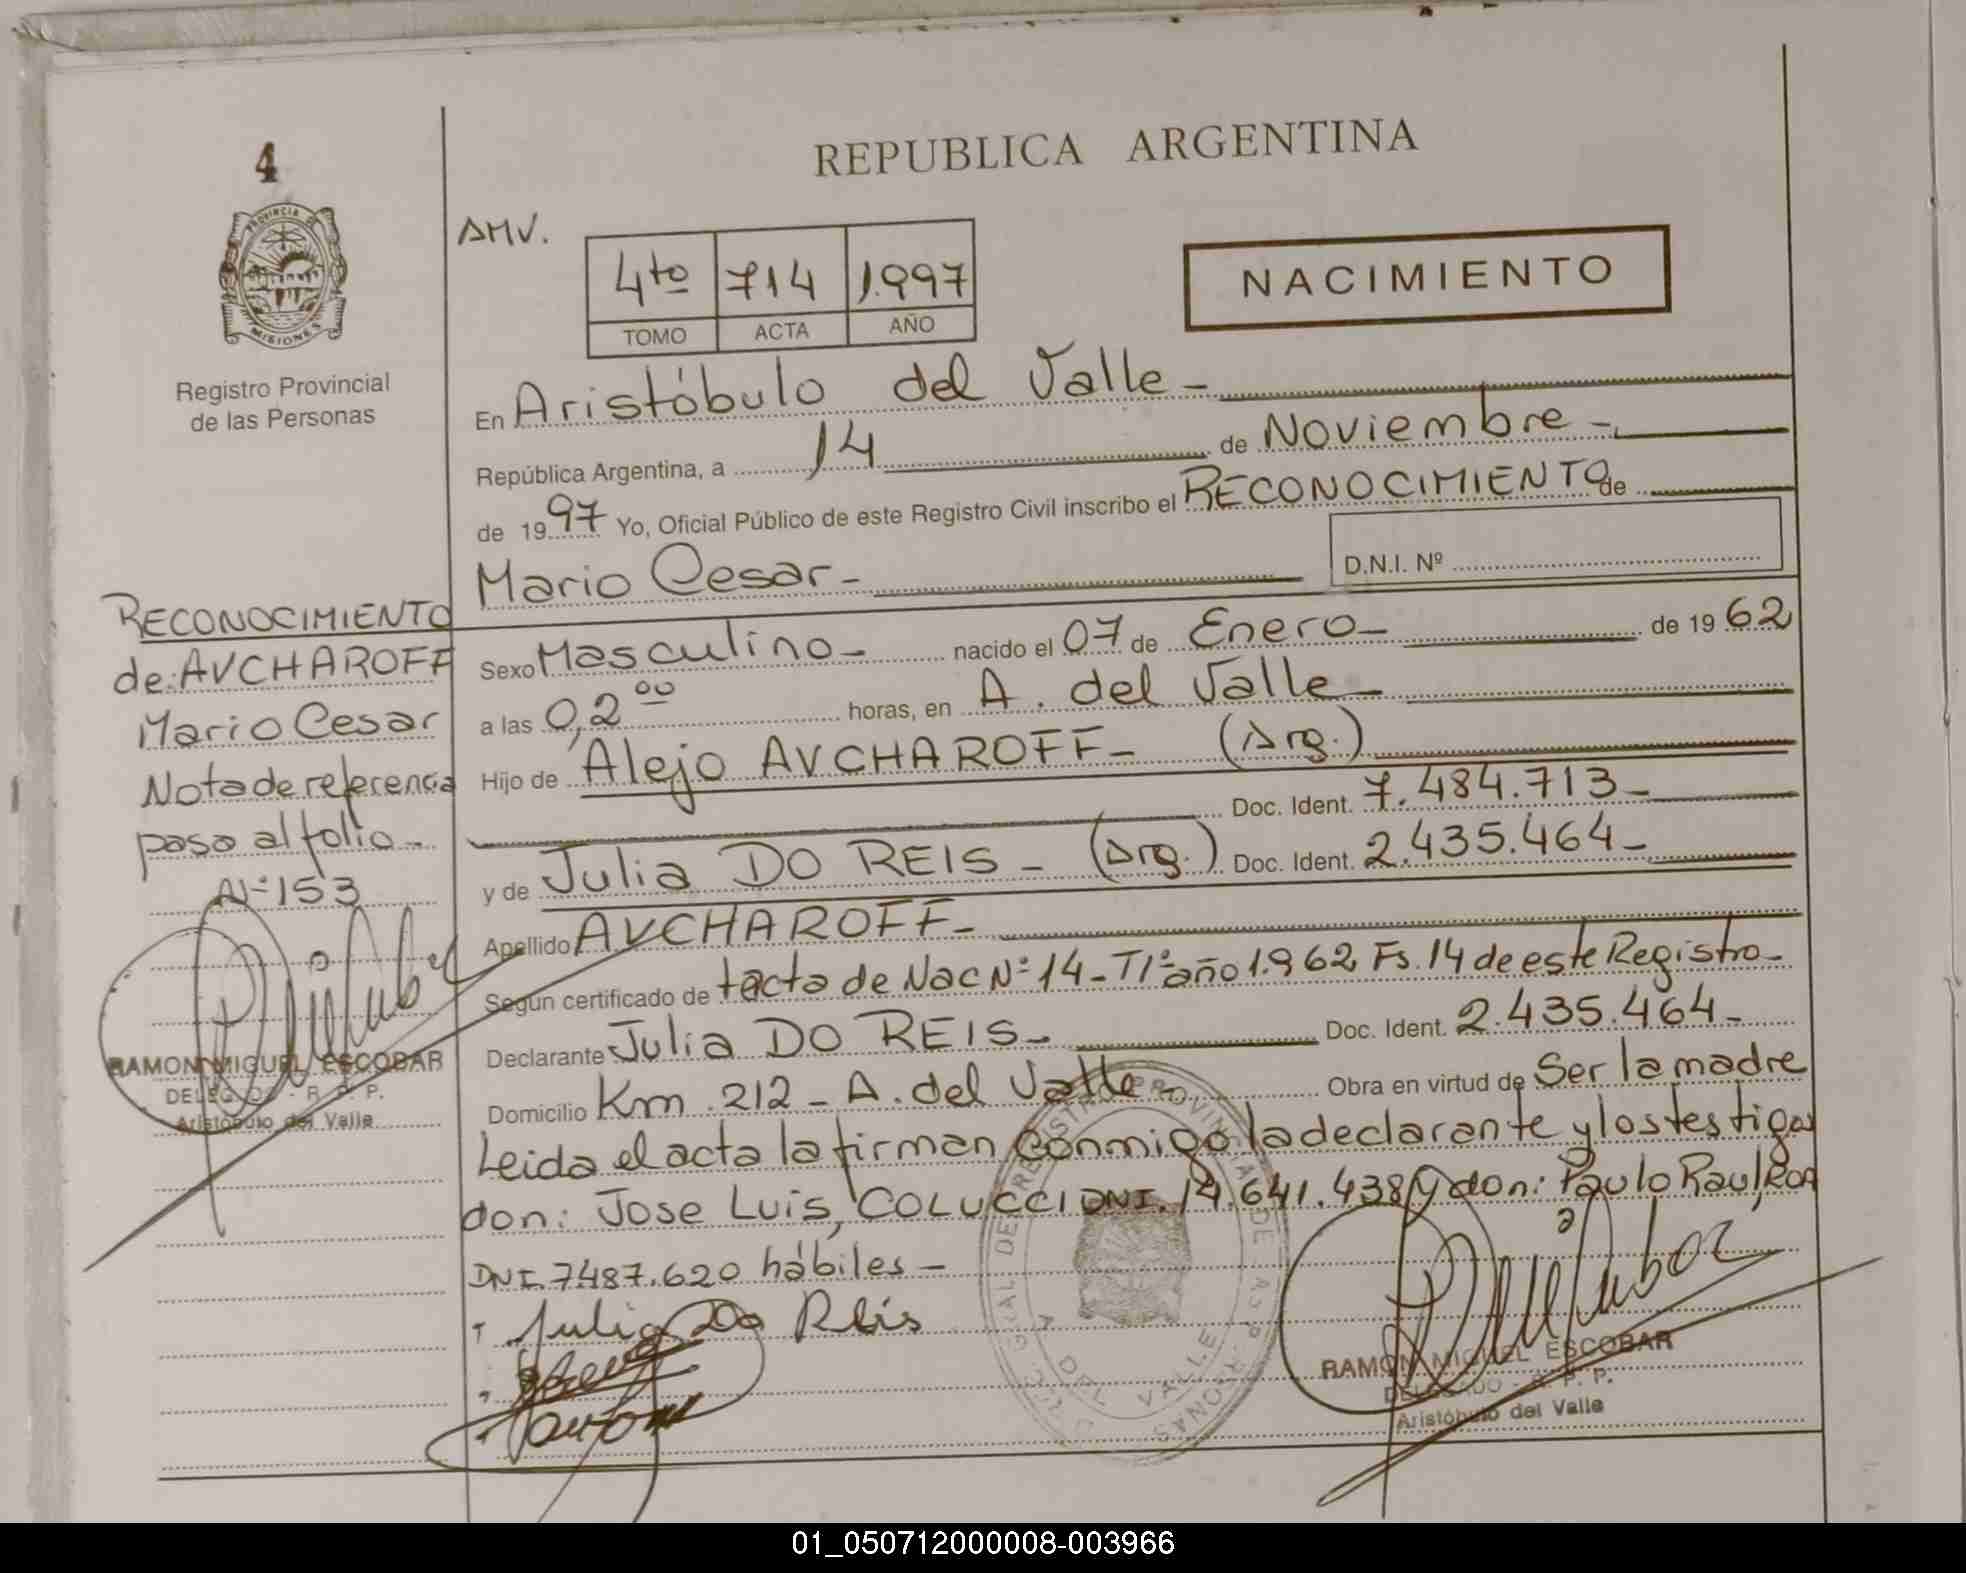 4
PROVINCIA DE
MISIONES
Registro Provincial
de las Personas
REPUBLICA ARGENTINA
AMV.
4to 714 1.997
TOMO ACTA AÑO
NACIMIENTO
En Aristóbulo del Valle -
República Argentina, a 14 de Noviembre -
de 1997 Yo, Oficial Público de este Registro Civil inscribo el RECONOCIMIENTO de
Mario Cesar - D.N.I. Nº
Sexo Masculino - nacido el 07 de Enero - de 1962
a las 0,2 00 horas, en A. del Valle -
Hijo de Alejo AVCHAROFF - (Arg.)
Doc. Ident. 7.484.713 -
y de Julia DO REIS - (Arg.) Doc. Ident. 2.435.464 -
Apellido AVCHAROFF -
Según certificado de tacta de Nac Nº 14 - T1º año 1.962 Fs. 14 de este Registro -
Declarante Julia DO REIS - Doc. Ident. 2.435.464 -
Domicilio Km. 212 - A. del Valle - Obra en virtud de Ser la madre
Leida el acta la firman conmigo la declarante y los testigos
don: Jose Luis, COLUCCI DNI. 14.641.438 y don: Paulo Raul, ROA
DNI. 7487.620 hábiles -
Julia Do Reis
RAMON MIGUEL ESCOBAR
DELEGADO - R. P. P.
Aristóbulo del Valle
RECONOCIMIENTO
de: AVCHAROFF
Mario Cesar
Nota de referencia
pasa al folio -
Nº 153
RAMON MIGUEL ESCOBAR
DELEGADO - R. P. P.
Aristóbulo del Valle
01_050712000008-003966